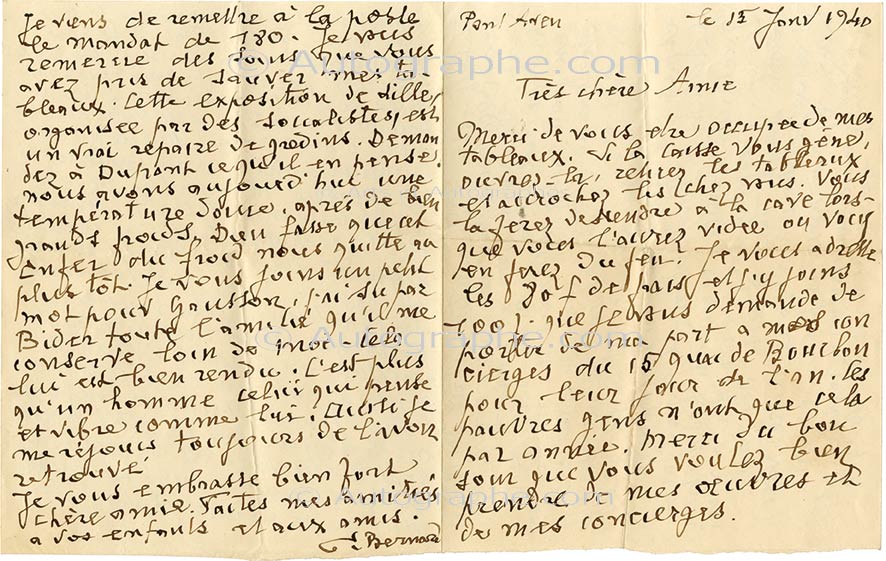 Pont Aven le 15 Janv 1940
Très chère Amie
Merci de vous etre occupée de mes
tableaux. Si la caisse vous gène,
ouvrez la, retirez les tableaux
et accrochez les chez vous. Vous
la ferez descendre à la cave lors-
que vous l'aurez vidée ou vous
en ferez du feu. Je vous adresse
les 80 f de frais et j'y joins
100 f. que je vous demande de
porter de ma part a mes con
cierges du 15 quai de Bourbon
pour leur jour de l'an. Les
pauvres gens n'ont que cela
par année. Merci du bon
soin que vous voulez bien
prendre de mes œuvres et
de mes concierges.
Je viens de remettre à la poste
le mandat de 180. Je vous
remercie des soins que vous
avez pris de sauver mes ta-
bleaux. Cette exposition de
organisée par des socialistes, est
un vrai repaire de gredins. Deman
dez à Dupont ce qu'il en pense.
nous avons aujourd'hui une
température douce, après de bien
grands froids, Dieu fasse que cet
Enfer du froid nous quitte au
plus tôt. Je vous joins un petit
mot pour Gausson, j'ai su par
Bider toute l'amitié qu'il me
conserve loin de moi. Cela
lui est bien rendu. C'est plus
qu'un homme celui qui pense
et vibre comme lui. Aussi je
me réjouis toujours de l'avoir
retrouvé
Je vous embrasse bien fort
chère amie. Faites mes amitiés
a vos enfants et aux amis.
E. Bernard
© Autographe.com